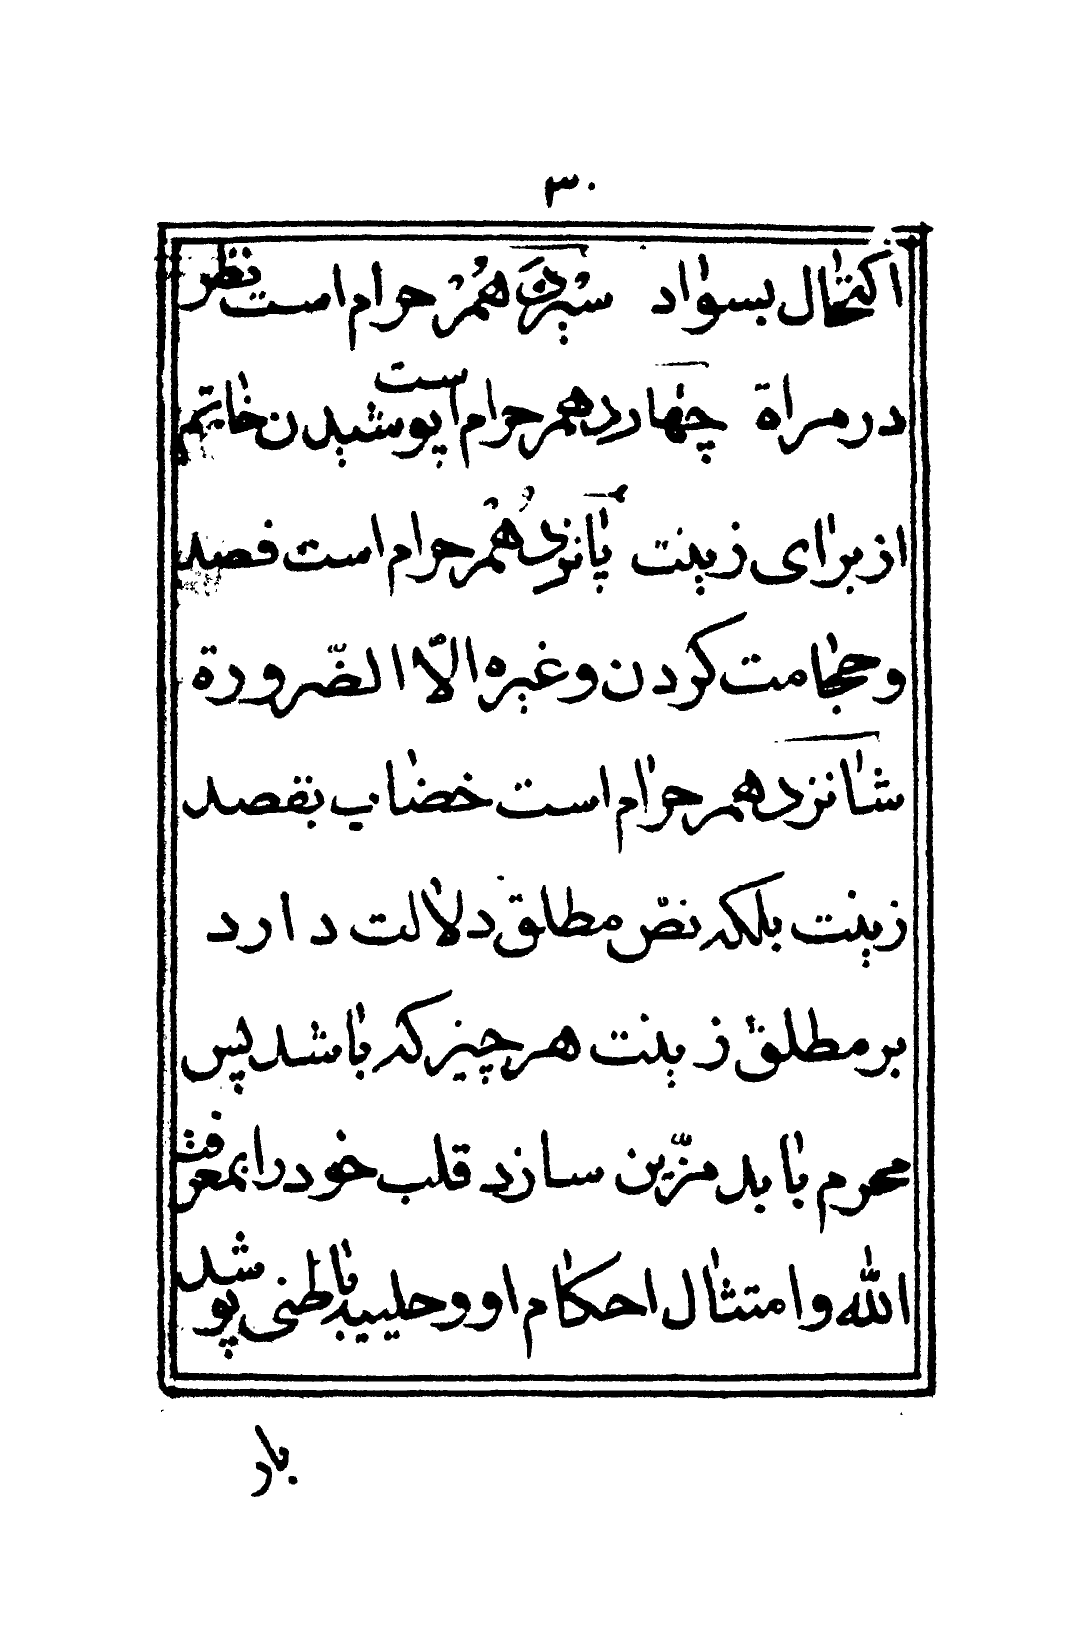 ۳۰
اکتحال بسواد سیزدهم حرام است نظر
در مراة چهاردهم حرام است پوشیدن خاتم
از برای زینت پانزدهم حرام است فصد
و حجامت کردن و غیره الّا الضّرورة
شانزدهم حرام است خضاب بقصد
زینت بلکه نصّ مطلق دلالت دارد
بر مطلق زینت هر چیز که باشد پس
محرم باید مزّین سازد قلب خود را بمعرفت
الله و امتثال احکام او و حلییه باطنی پوشد
بار